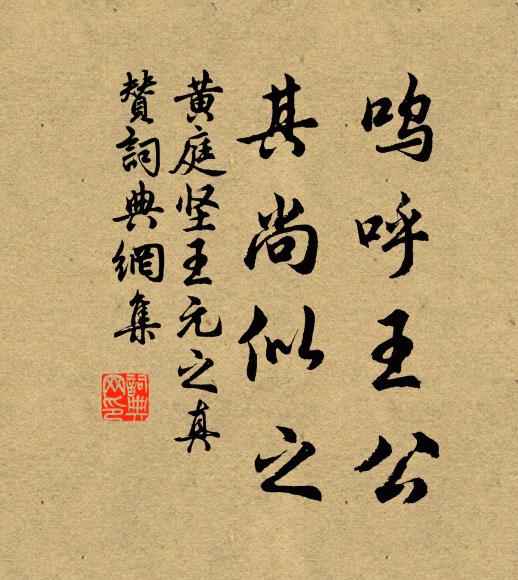 呜呼王公
其尚似之
黄庭坚王元之真
赞词典網集
詞典
网印